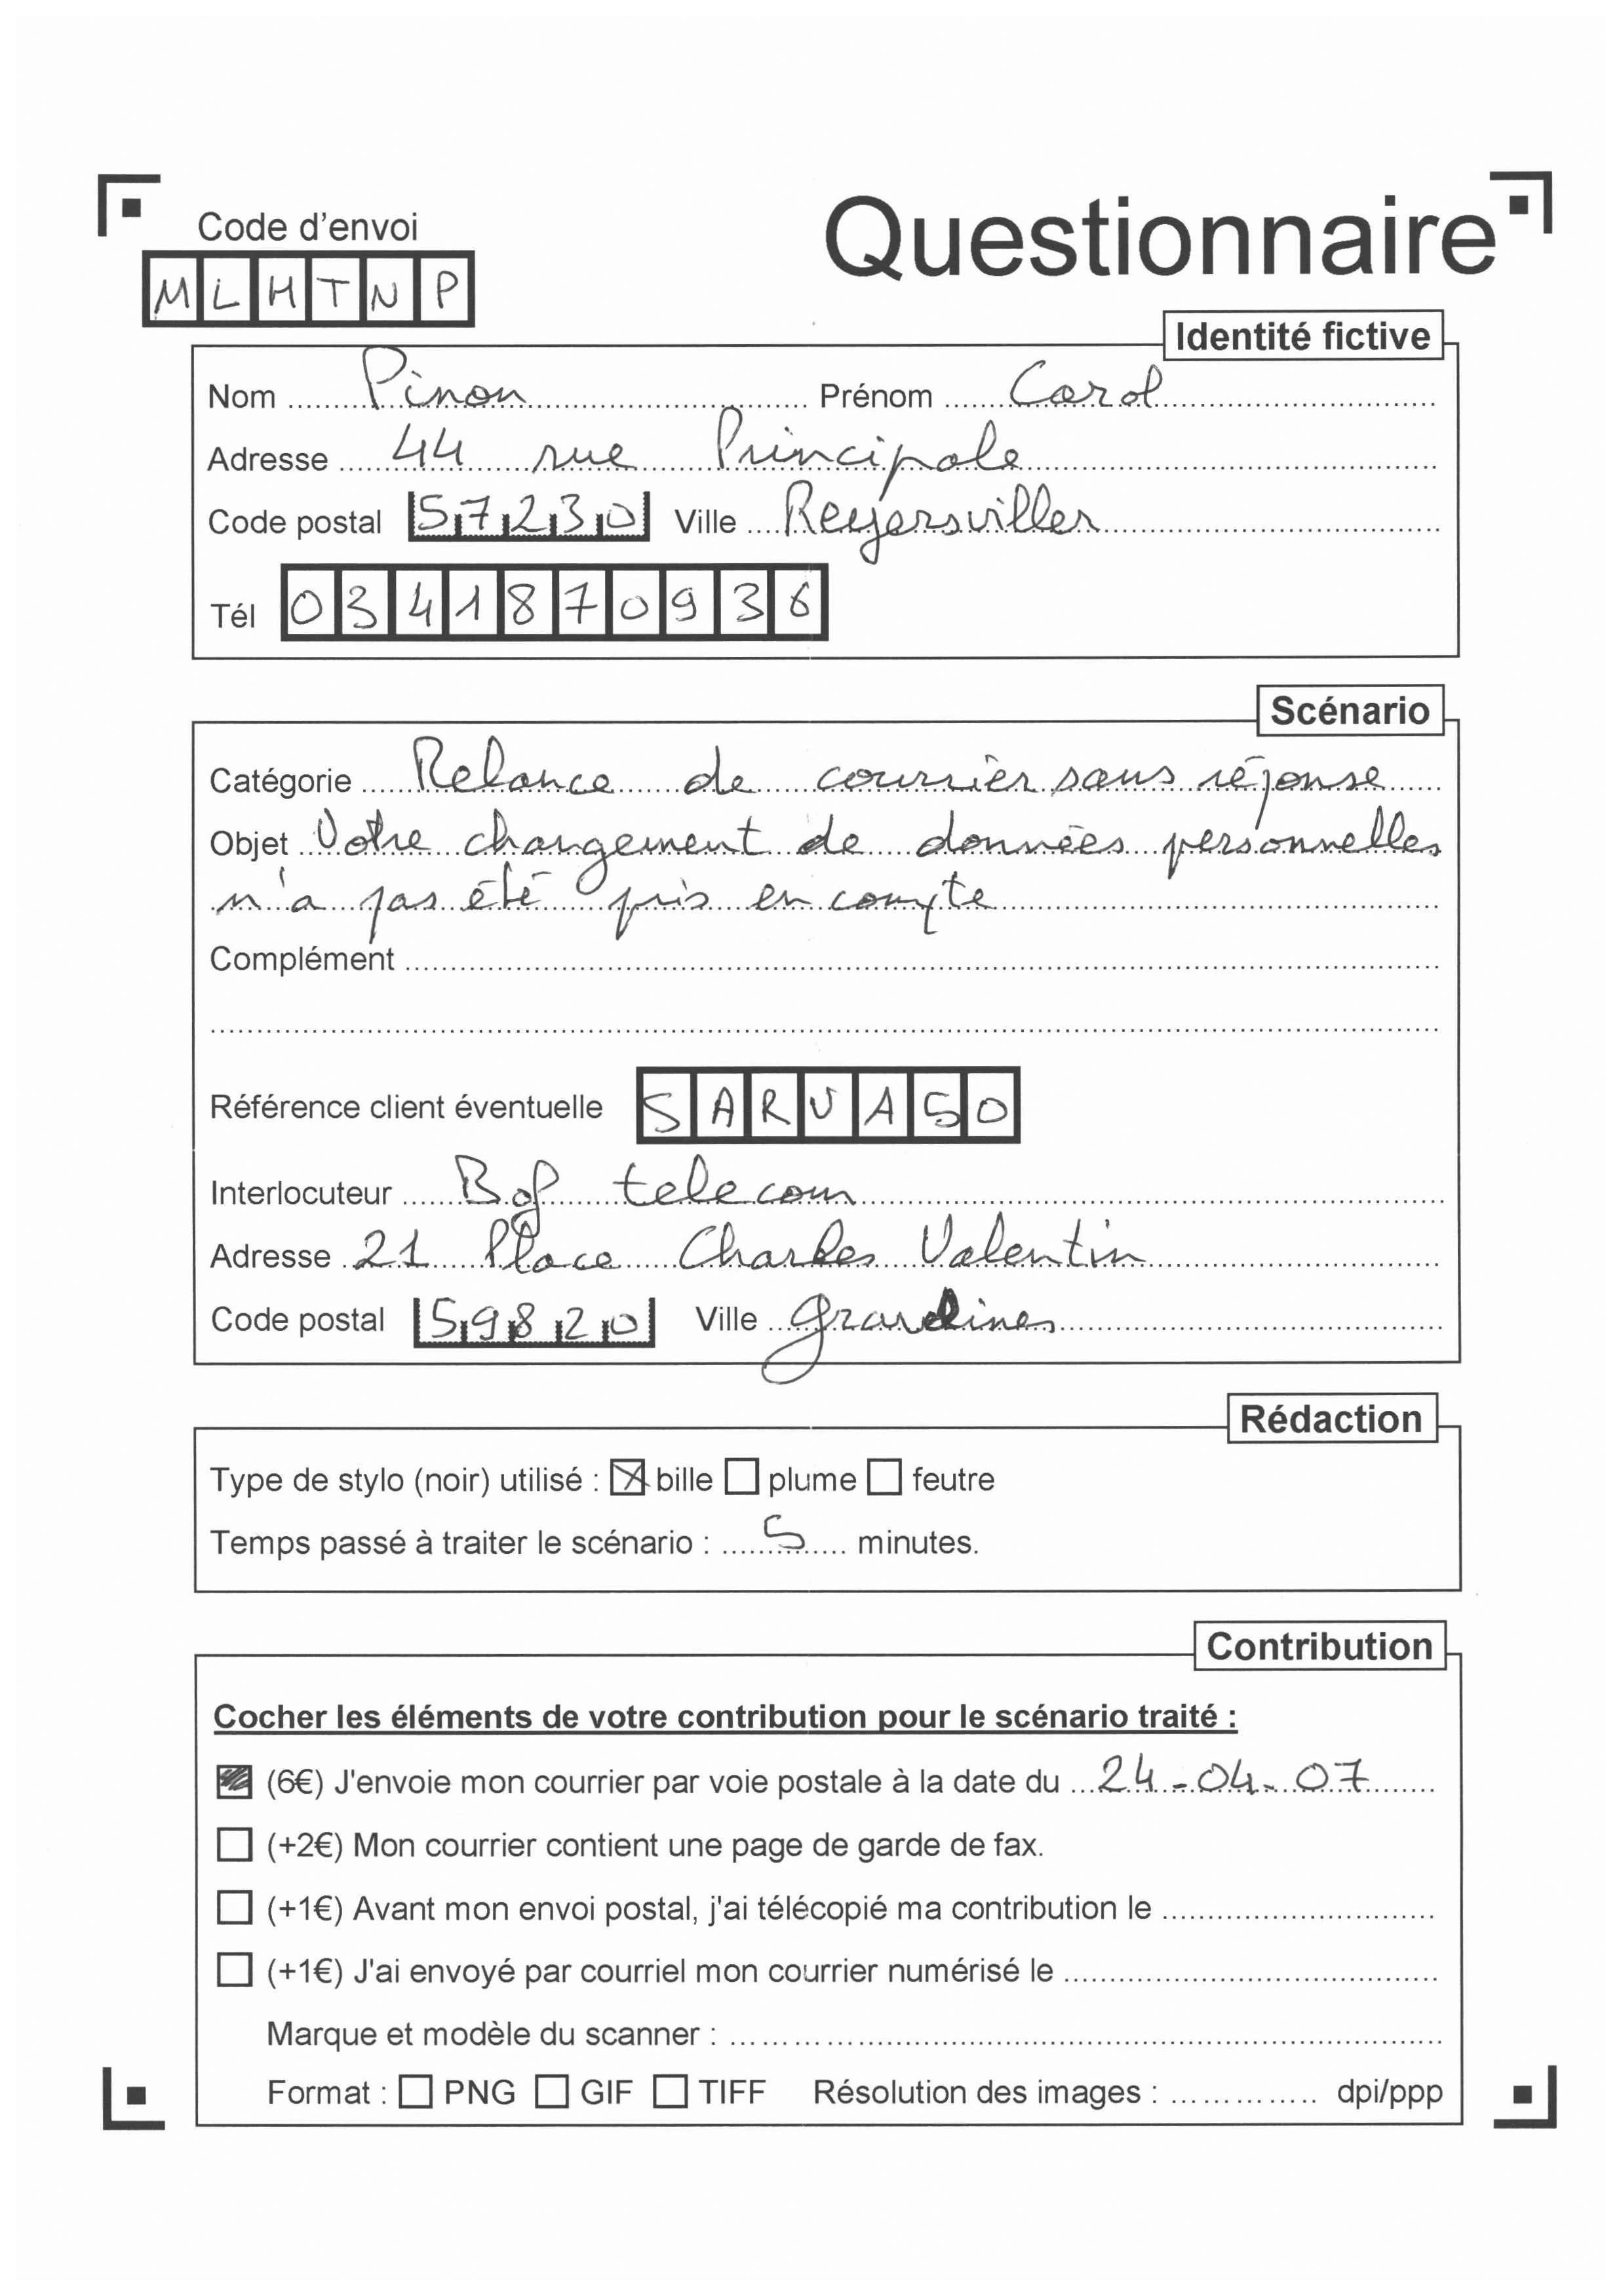 Code d'envoi
Questionnaire
MLHTNP
Identité fictive
Nom Pinon Prénom Carol
Adresse 44 rue Principale
Code postal 57230 Ville Reyersviller
Tél 0341870936
Scénario
Catégorie Relance de courrier sans réponse
Objet Votre changement de données personnelles
n'a pas été pris en compte
Complément
Référence client éventuelle SARVA50
Interlocuteur Bop telecom
Adresse 21 Place Charles Valentin
Code postal 59820 Ville Gravelines
Rédaction
Type de stylo (noir) utilisé : ☒ bille ☐ plume ☐ feutre
Temps passé à traiter le scénario : 5 minutes.
Contribution
Cocher les éléments de votre contribution pour le scénario traité :
☒ (6€) J'envoie mon courrier par voie postale à la date du 24-04-07
☐ (+2€) Mon courrier contient une page de garde de fax.
☐ (+1€) Avant mon envoi postal, j'ai télécopié ma contribution le
☐ (+1€) J'ai envoyé par courriel mon courrier numérisé le
Marque et modèle du scanner :
Format : ☐ PNG ☐ GIF ☐ TIFF Résolution des images : dpi/ppp